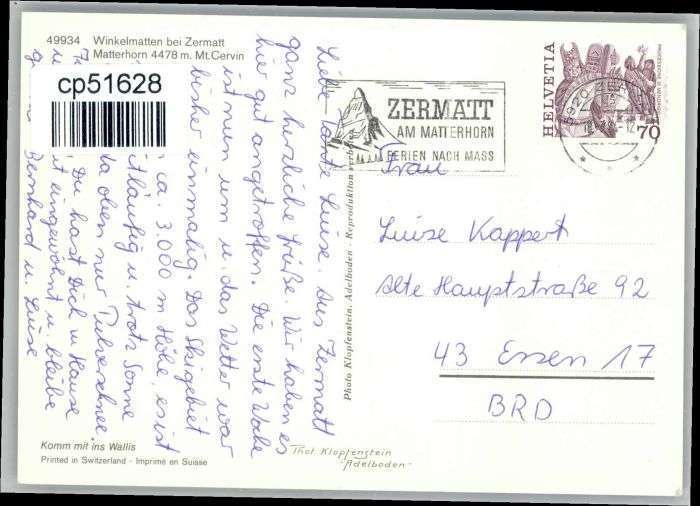 49934 Winkelmatten bei Zermatt
Matterhorn 4478 m. Mt. Cervin
cp51628
Liebe Tante Luise. Aus Zermatt
ganz herzliche Grüße. Wir haben es
hier gut angetroffen. Die erste Woche
ist nun um u. das Wetter war
bisher einmalig. Das Skigebiet
ca. 3.000 m Höhe, es ist
u. trotz Sonne
da oben nur Pulverschnee
Du hast Dich zu Hause
eingewöhnt u. bleibe
Bernhard u. Luise
Komm mit ins Wallis
Printed in Switzerland - Imprimé en Suisse
Photo Klopfenstein, Adelboden / Reproduktion verboten
Phot. Klopfenstein
"Adelboden"
ZERMATT
AM MATTERHORN
FERIEN NACH MASS
HELVETIA
70
Frau
Luise Kappert
Alte Hauptstraße 92
43 Essen 17
BRD